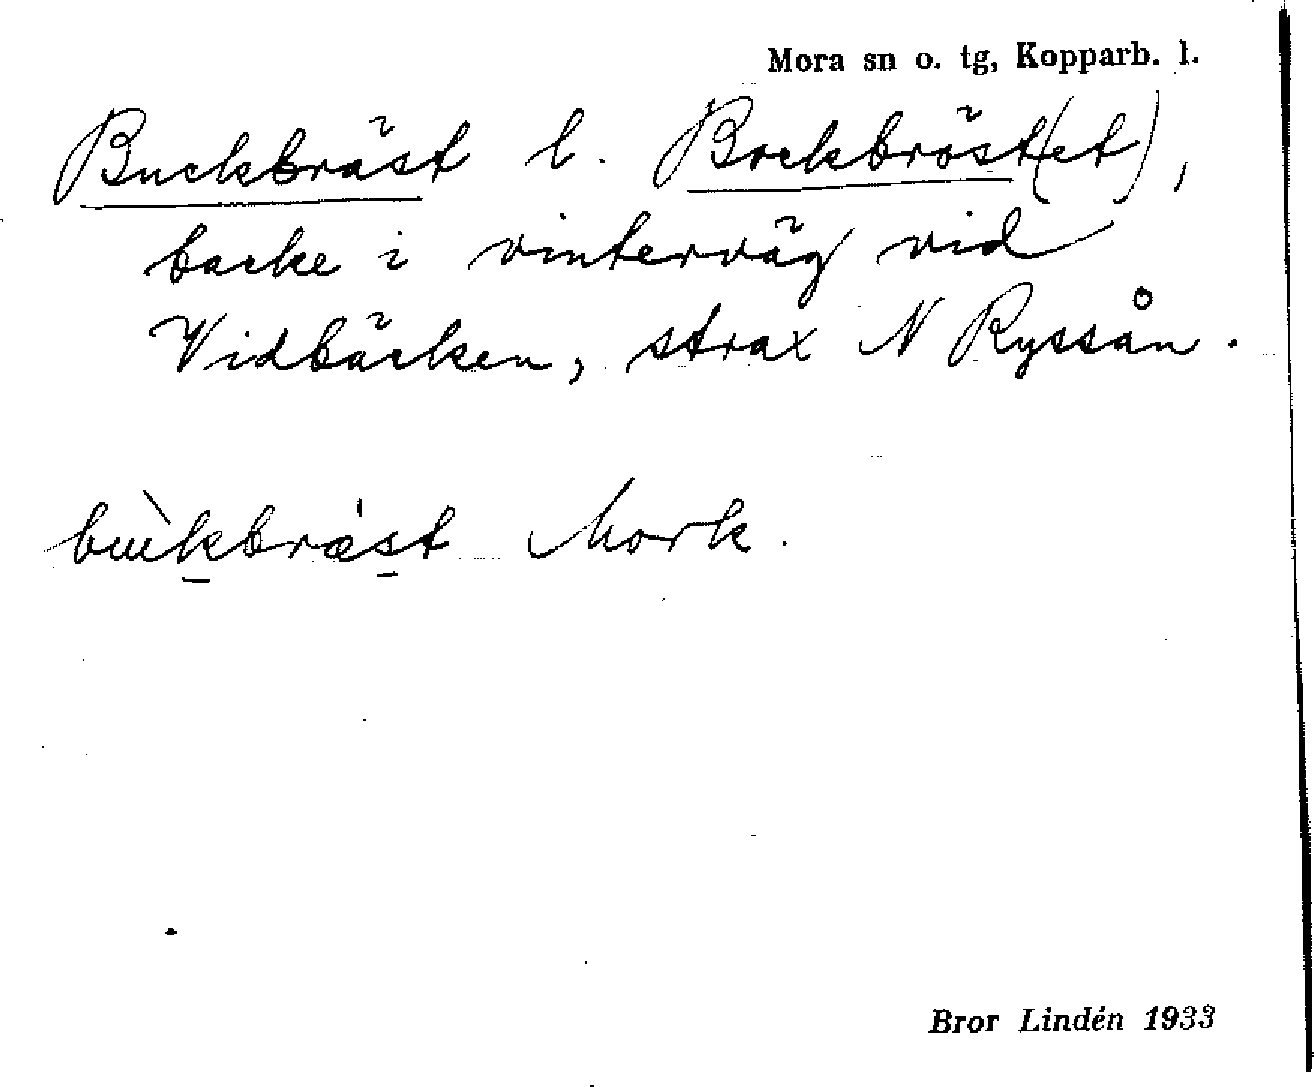 Mora sn o. tg, Kopparb. l.
Buckbräst l. Bockbröst(et),
backe i vinterväg vid
Vidbäcken, strax N Ryssån.
bùkbræ̀st Mork.
Bror Lindén 1933